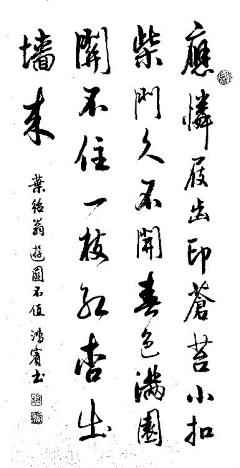 應憐屐齒印蒼苔小扣
柴門久不開春色滿園
關不住一枝紅杏出
墻來
葉紹翁遊園不值 鴻賓書